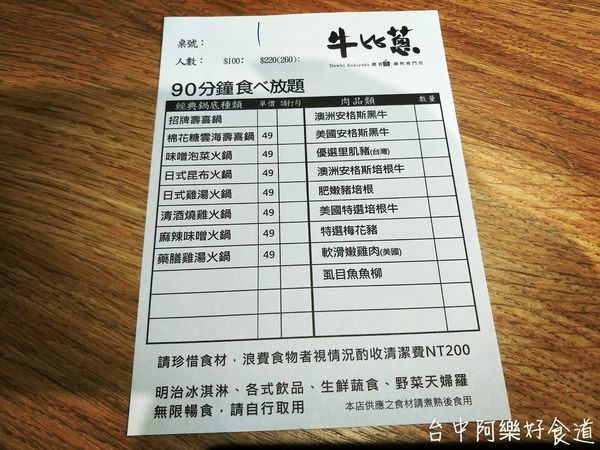 桌號：
人數： $100： $220(260)：
牛比蔥
Newbi Sukiyaki 壽喜鍋物專門店
90分鐘食べ放題
經典鍋底種類 單價 請打勾 肉品類 數量
招牌壽喜鍋 澳洲安格斯黑牛
棉花糖雲海壽喜鍋 49 美國安格斯黑牛
味噌泡菜火鍋 49 優選里肌豬(台灣)
日式昆布火鍋 49 澳洲安格斯培根牛
日式雞湯火鍋 49 肥嫩豬培根
清酒燒雞火鍋 49 美國特選培根牛
麻辣味噌火鍋 49 特選梅花豬
藥膳雞湯火鍋 49 軟滑嫩雞肉(美國)
虱目魚魚柳
請珍惜食材，浪費食物者視情況酌收清潔費NT200
明治冰淇淋、各式飲品、生鮮蔬食、野菜天婦羅
無限暢食，請自行取用 本店供應之食材請煮熟後食用
台中阿樂好食道